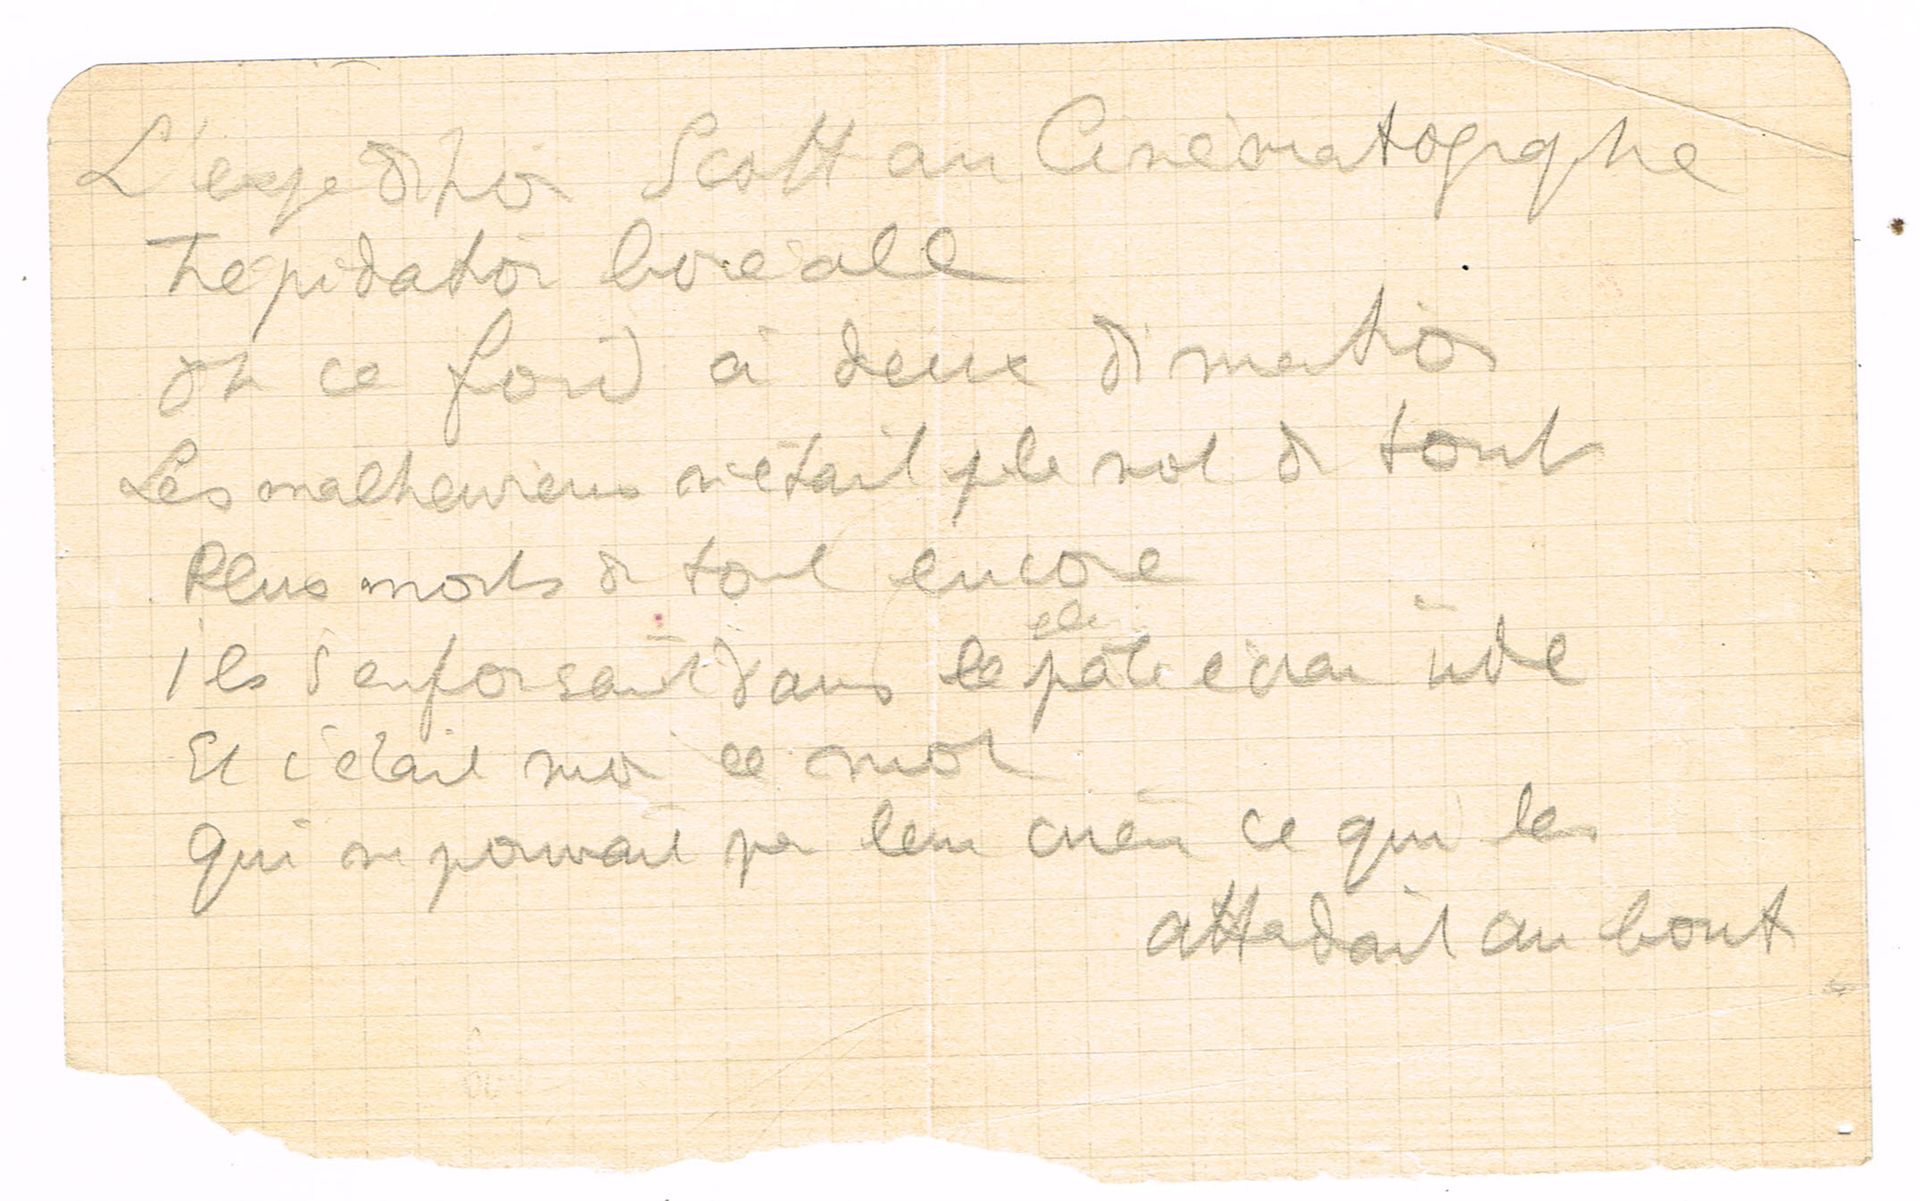 L'expédition Scott au Cinématographe
Trépidation boréale
Oh ce froid à deux dimention
Les malheureux n'était ple mot de tout
Plus morts de tout encore
Ils s'enfonsait dans le pâle écran
Et c'était moi ce mot
Qui ne pouvait pas leur crier ce qui les
attadait au bout